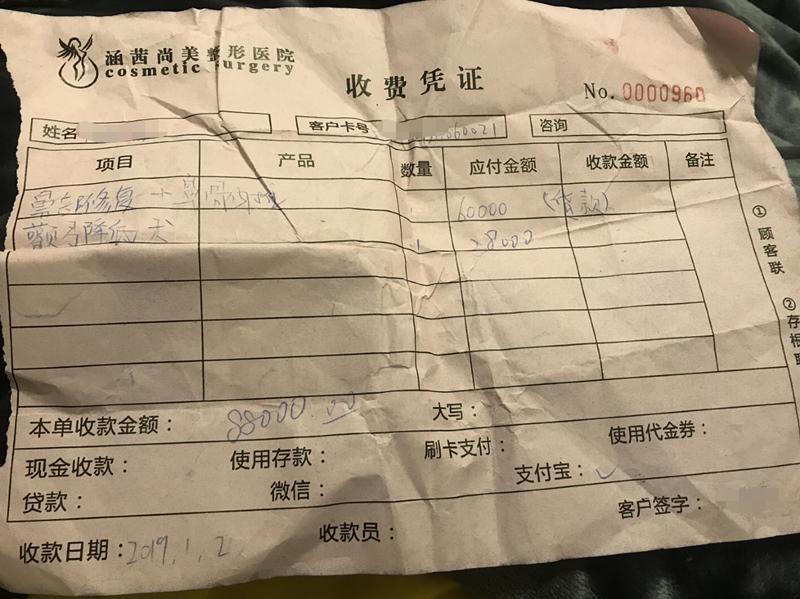 涵茜尚美整形医院
cosmetic surgery
收费凭证
No. 0000960
姓名 客户卡号 60021 咨询
项目 产品 数量 应付金额 收款金额 备注
修复 60000 (贷款)
颧弓降低 1 28000
① 顾客联
② 存根联
本单收款金额： 88000.00 大写：
现金收款： 使用存款： 刷卡支付： 使用代金券：
贷款： 微信： 支付宝：
收款日期：2019.1.2 收款员： 客户签字：